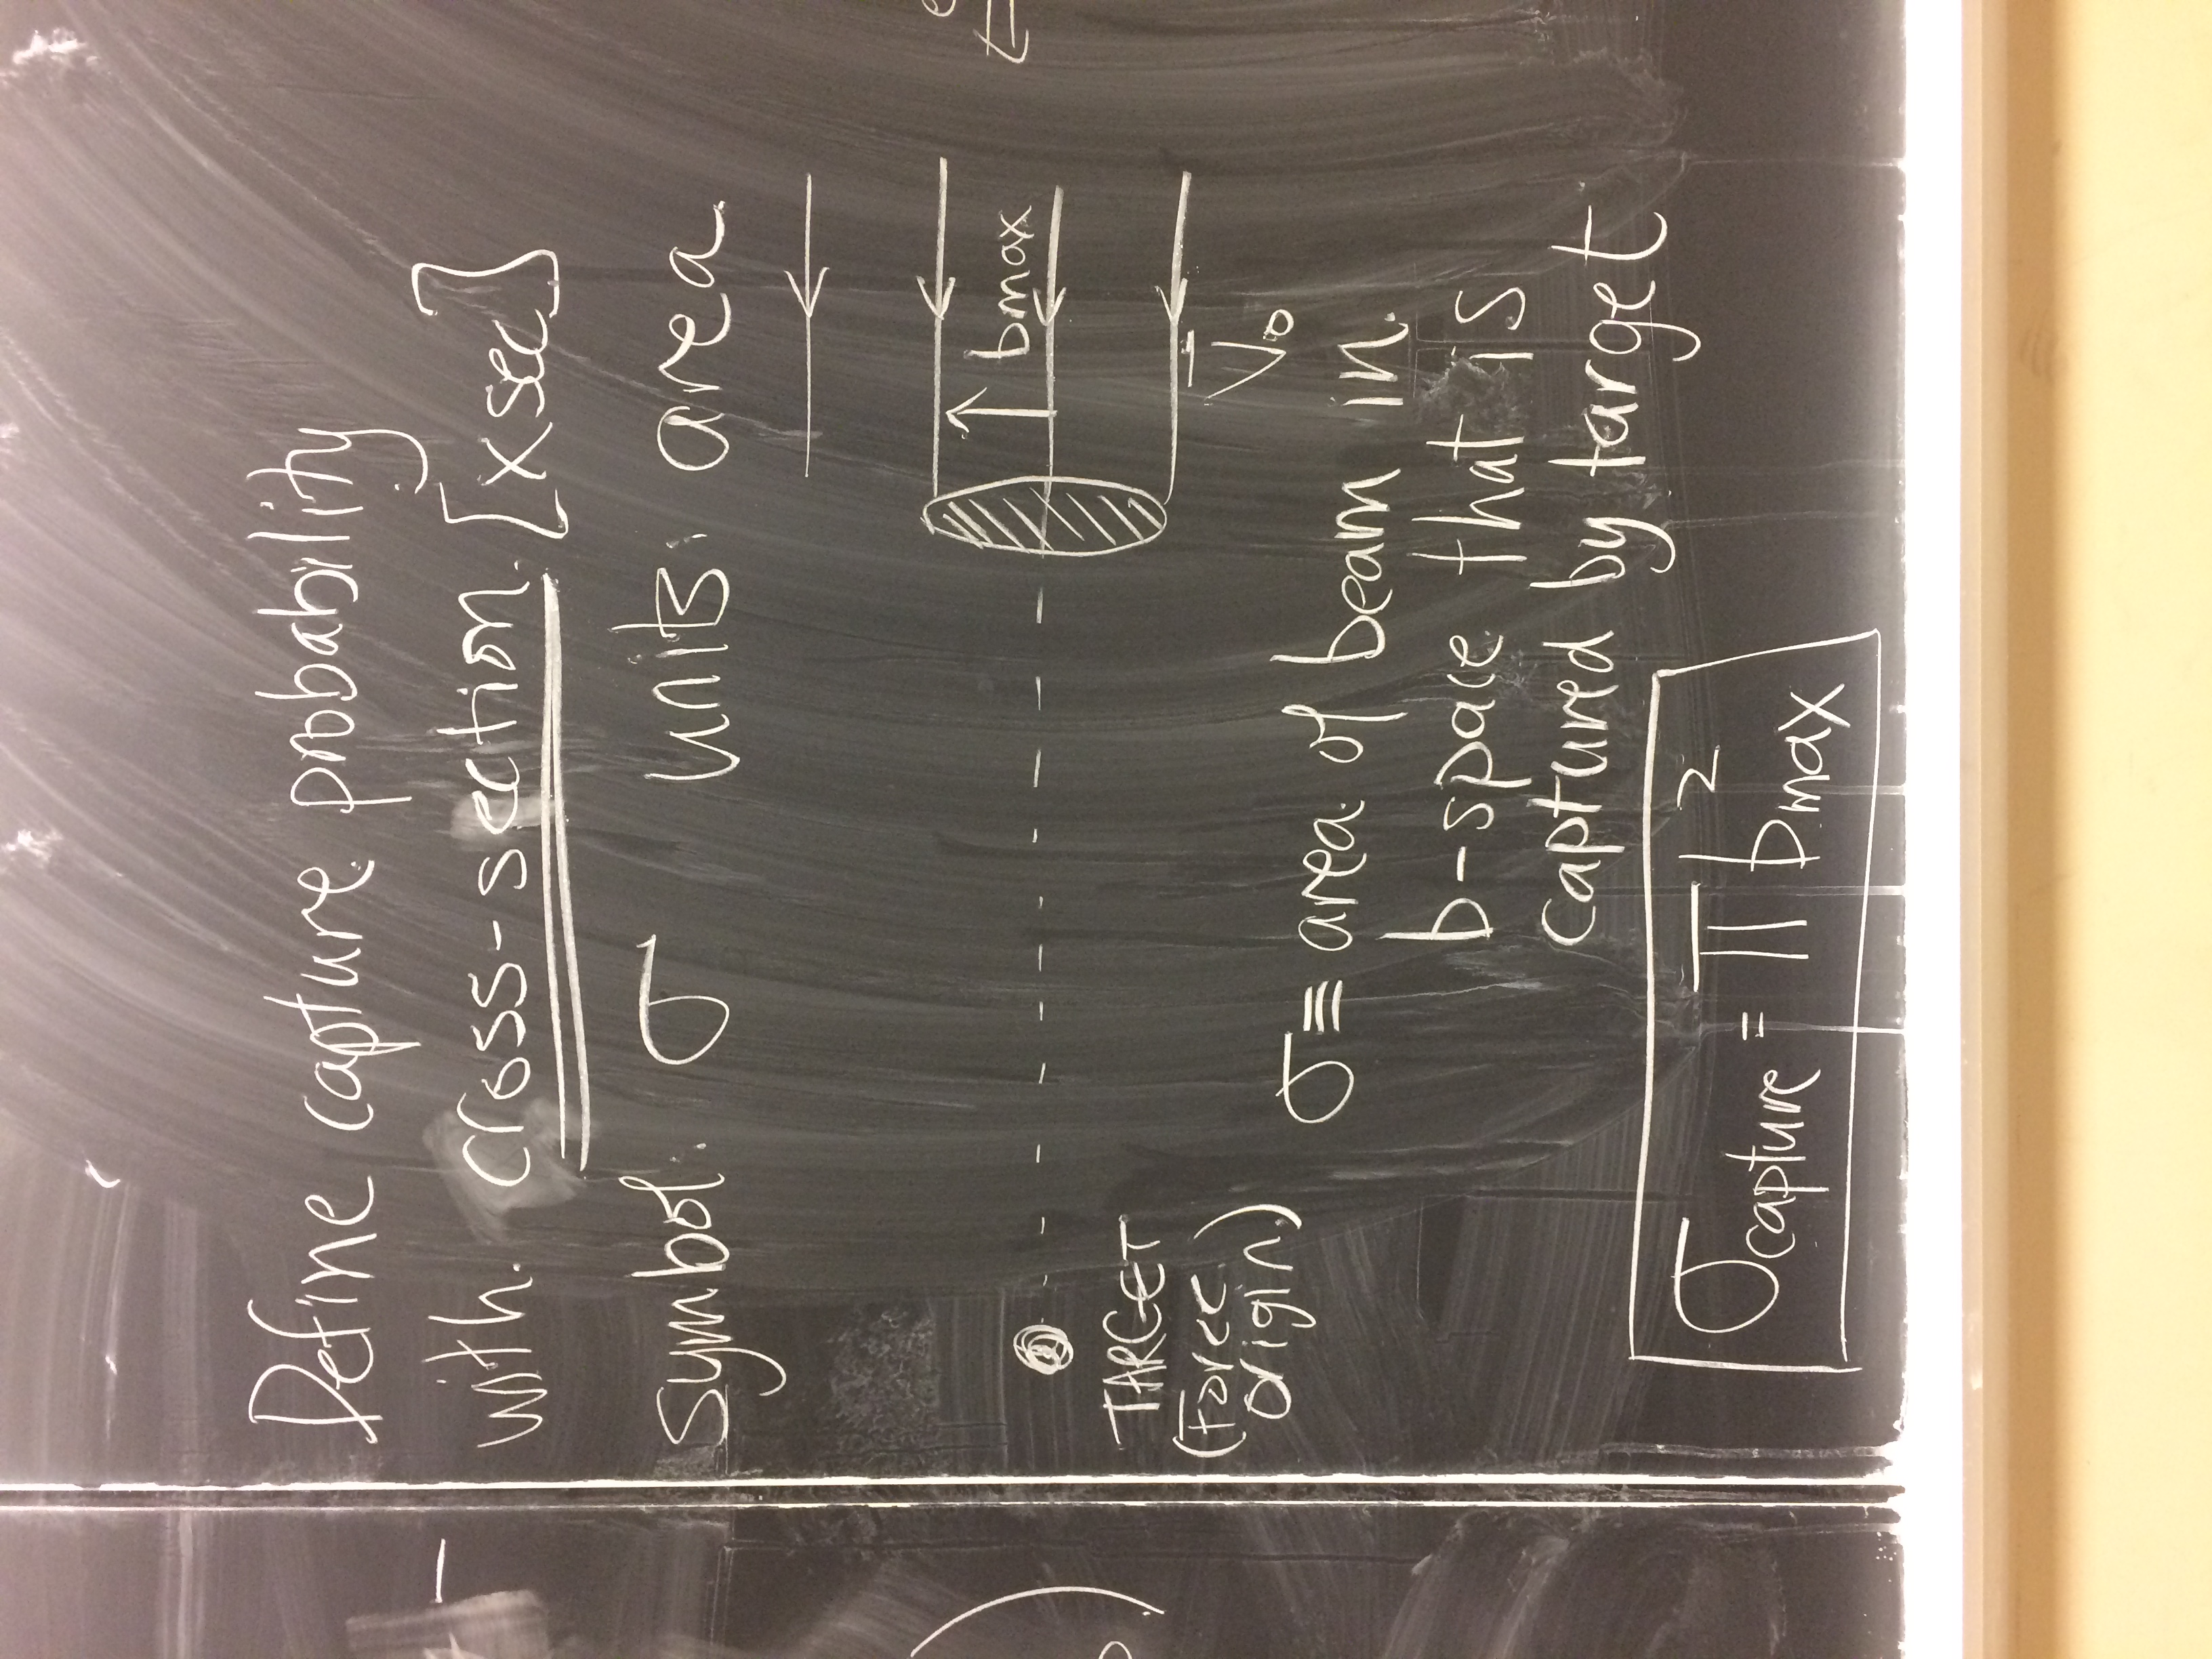 Define capture probability
with cross-section. [xsec]
symbol: σ units: area
bmax
V₀
TARGET
(force
origin)
σ ≡ area of beam in
b-space that is
captured by target
σcapture = π b²max